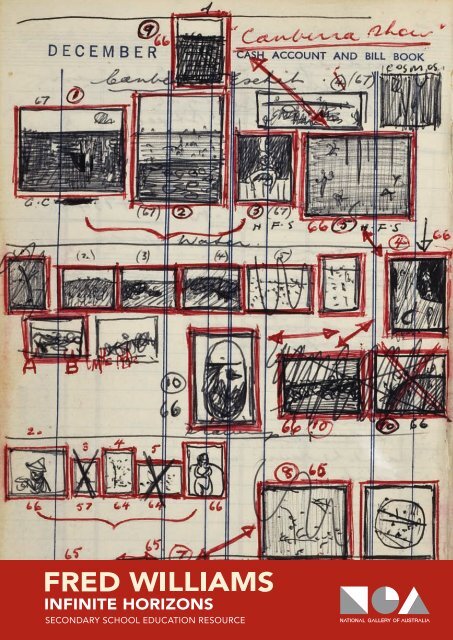 1
9
66
"Canberra Show"
DECEMBER CASH ACCOUNT AND BILL BOOK
COSMOS
67 1
(67) 2 3 (67)
H F-S 66 5 H F-S
4
66
Water
(2) (3) (4) (5)
A B
10
66
66 10 10 66
2 3 4 5
66 57 64 64 66
8 65
65 65 7
FRED WILLIAMS
INFINITE HORIZONS
SECONDARY SCHOOL EDUCATION RESOURCE
NGA
NATIONAL GALLERY OF AUSTRALIA